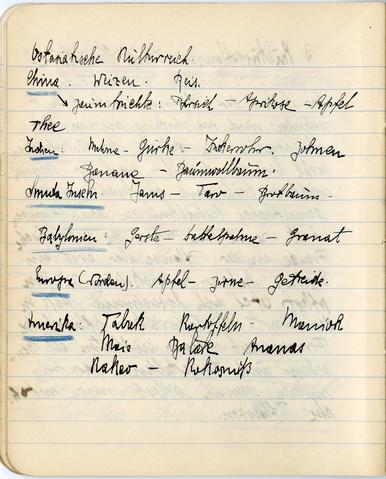 Ostasiatische Kulturreich.
China. Weizen. Reis.
Baumfrüchte: Pfirsich - Aprikose - Apfel
Thee
Indien: - Gurke - Zuckerrohr. Bohnen
Banane - Baumwollbaum.
Sunda Inseln: Jams - Taro - Brotbaum.
Babylonien: Gerste - Dattelpalme - Granat
Europa (Norden). Apfel - Birne - Getreide.
Amerika: Tabak Kartoffeln - Maniok
Mais Batate Ananas
Kakao - Kokosnuß